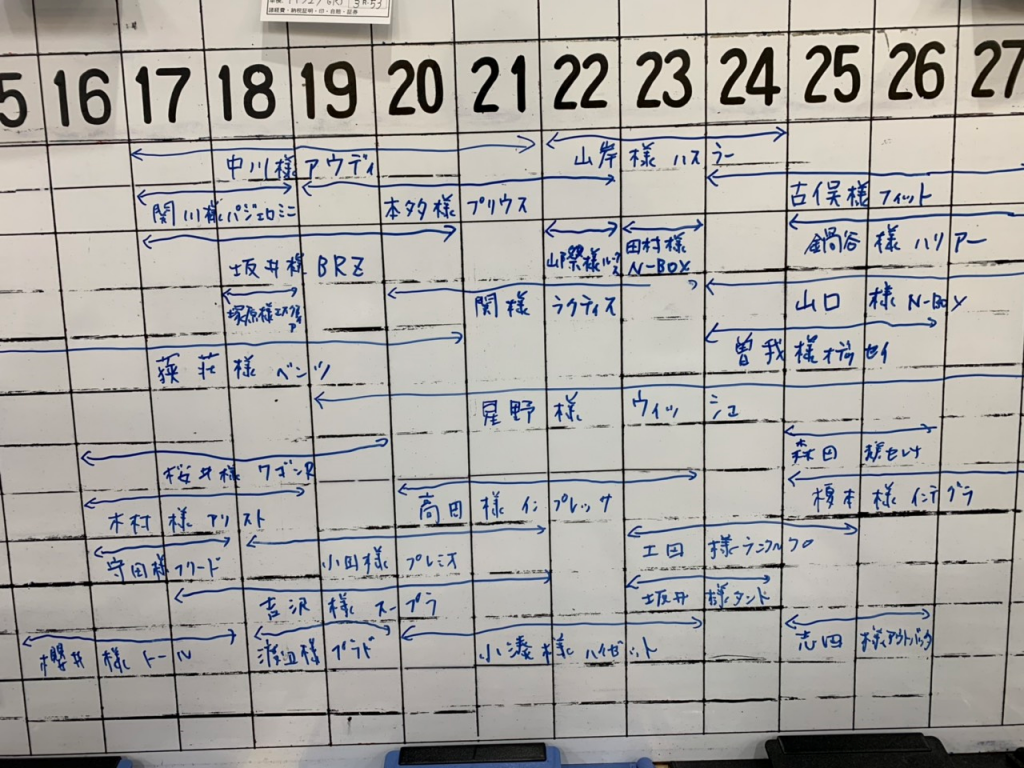 諸経費・納税証明・印・自賠・証券
5 16 17 18 19 20 21 22 23 24 25 26 27
中川様 アウディ
山岸様 ハスラー
関川様 パジェロミニ
本多様 プリウス
古俣様 フィット
坂井様 BRZ
田村様
N-BOX
鍋谷様 ハリアー
塚原様
関様 ラクティス
山口様 N-BOX
狭荘様 ベンツ
曽我様 オデッセイ
星野様 ウィッシュ
桜井様 ワゴンR
森田様 セレナ
木村様 アリスト
高田様 インプレッサ
榎本様 インテグラ
守田様 フリード
小田様 プレミオ
工田様 ランクルプロ
吉沢様 スープラ
坂井様 タント
櫻井様 トール
渡辺様 プラド
小湊様 ハイゼット
志田様 アウトバック